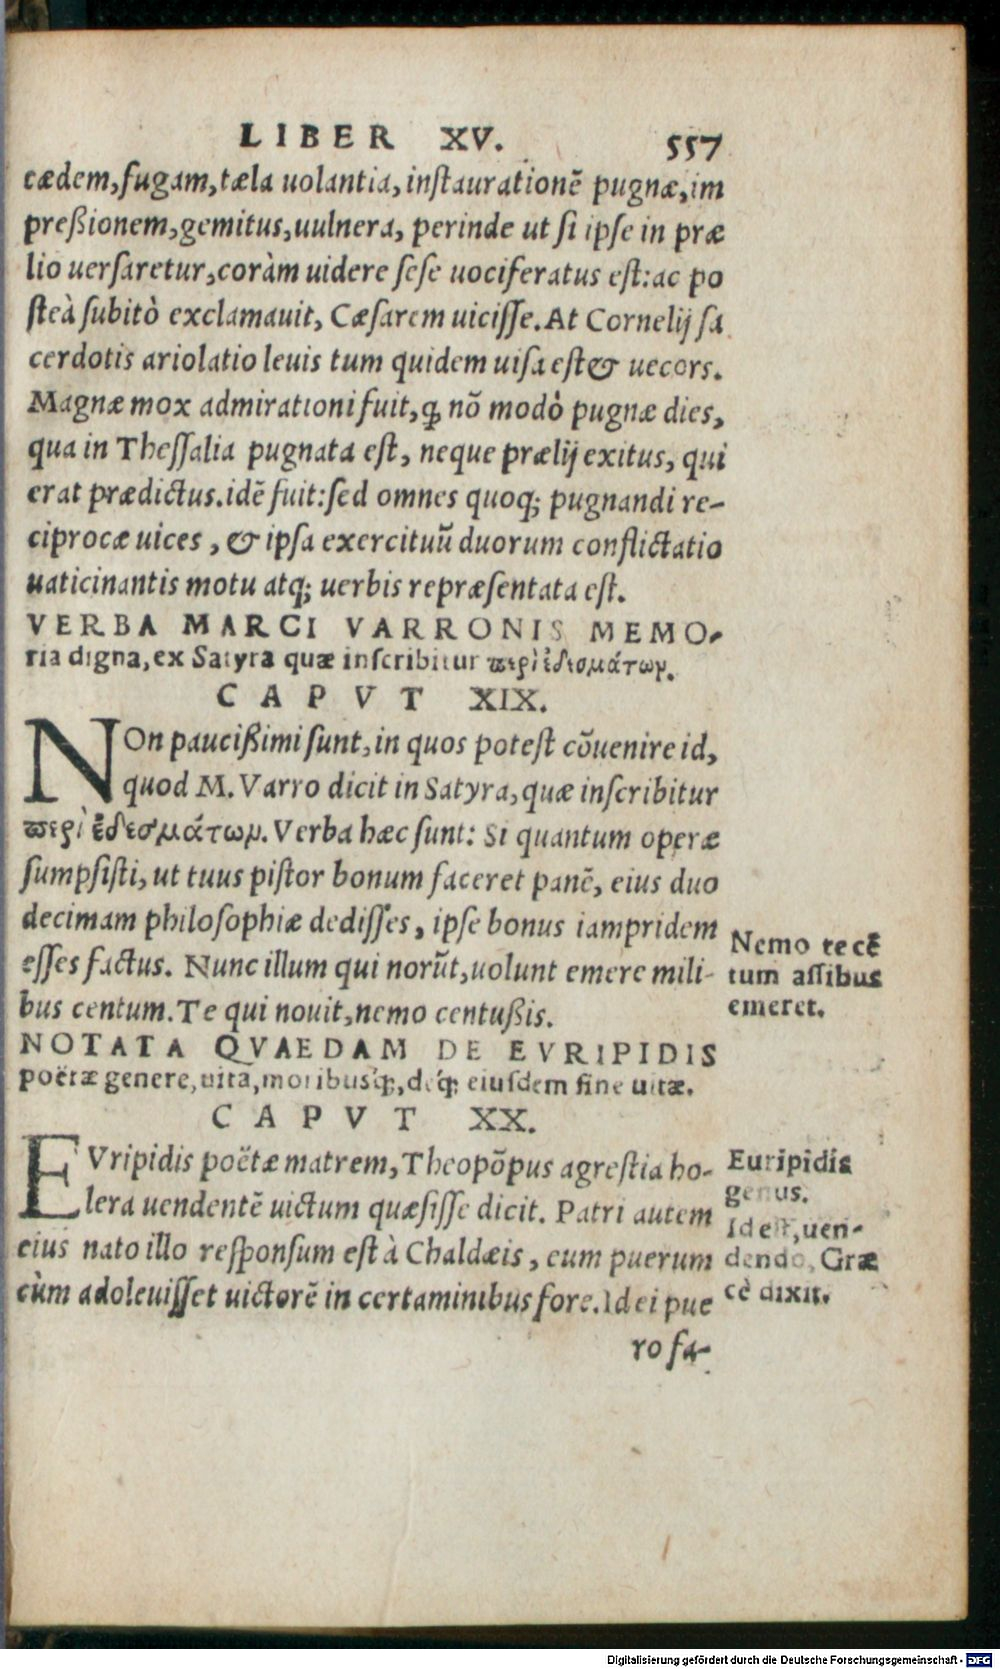 LIBER XV. 557
cædem, fugam, tæla uolantia, instaurationē pugnæ, im
preßionem, gemitus, uulnera, perinde ut si ipse in præ
lio uersaretur, coràm uidere sese uociferatus est: ac po
steà subitò exclamauit, Cæsarem uicisse. At Cornelij sa
cerdotis ariolatio leuis tum quidem uisa est & uecors.
Magnæ mox admirationi fuit, ꝙ nō modò pugnæ dies,
qua in Thessalia pugnata est, neque prælij exitus, qui
erat prædictus. idē fuit: sed omnes quoq; pugnandi re-
ciprocæ uices, & ipsa exercituū duorum conflictatio
uaticinantis motu atq; uerbis repræsentata est.
VERBA MARCI VARRONIS MEMO-
ria digna, ex Satyra quæ inscribitur περὶ ἐδεσμάτων.
CAPVT XIX.
NOn paucißimi sunt, in quos potest cōuenire id,
quod M. Varro dicit in Satyra, quæ inscribitur
περὶ ἐδεσμάτων. Verba hæc sunt: Si quantum operæ
sumpsisti, ut tuus pistor bonum faceret panē, eius duo
decimam philosophiæ dedisses, ipse bonus iampridem
esses factus. Nunc illum qui norūt, uolunt emere mili-
bus centum. Te qui nouit, nemo centußis.
Nemo te cē
tum assibus
emeret.
NOTATA QVAEDAM DE EVRIPIDIS
poëtæ genere, uita, moribusq́;, deq́; eiusdem fine uitæ.
CAPVT XX.
EVripidis poëtæ matrem, Theopōpus agrestia ho-
lera uendentē uictum quæsisse dicit. Patri autem
eius nato illo responsum est à Chaldæis, eum puerum
cùm adoleuisset uictorē in certaminibus fore. Id ei pue
ro fa-
Euripidis
genus.
Id est, uen-
dendo, Græ
cè dixit.
Digitalisierung gefördert durch die Deutsche Forschungsgemeinschaft - DFG